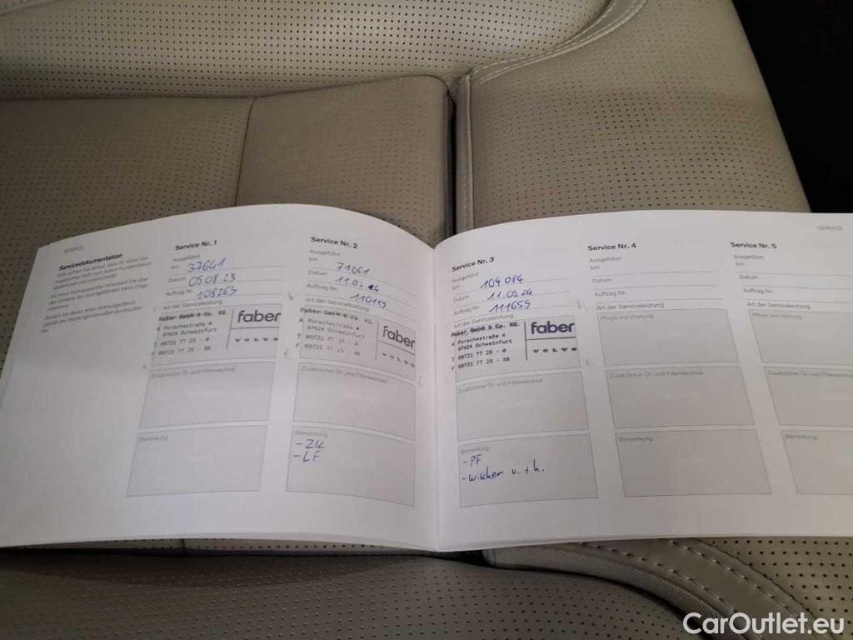 Servicedokumentation
Service Nr. 1
Ausgeführt
km 37641
Datum 05.08.23
Auftrag Nr. 108265
Art der Serviceleistung
Faber GmbH & Co. KG.
Porschestraße 4
97424 Schweinfurt
09721 77 25 - 0
faber
VOLVO
Zusätzlicher Öl- und Filterwechsel
Bemerkung
Service Nr. 2
Ausgeführt
km 71061
Datum
Auftrag Nr. 110119
Art der Serviceleistung
Faber GmbH & Co. KG.
Porschestraße 4
97424 Schweinfurt
09721 77 25 - 0
faber
VOLVO
Zusätzlicher Öl- und Filterwechsel
Bemerkung
-ZK
-LF
Service Nr. 3
Ausgeführt
km 104084
Datum 11.09.24
Auftrag Nr. 111655
Art der Serviceleistung
Faber GmbH & Co. KG.
Porschestraße 4
97424 Schweinfurt
09721 77 25 - 0
faber
VOLVO
Zusätzlicher Öl- und Filterwechsel
Bemerkung
-PF
-wischer v. + h.
Service Nr. 4
Ausgeführt
km
Datum
Auftrag Nr.
Art der Serviceleistung
Pflege und Wartung
Zusätzlicher Öl- und Filterwechsel
Bemerkung
Service Nr. 5
Ausgeführt
km
Datum
Auftrag Nr.
Art der Serviceleistung
Pflege und Wartung
Zusätzlicher Öl- und Filterwechsel
Bemerkung
CarOutlet.eu